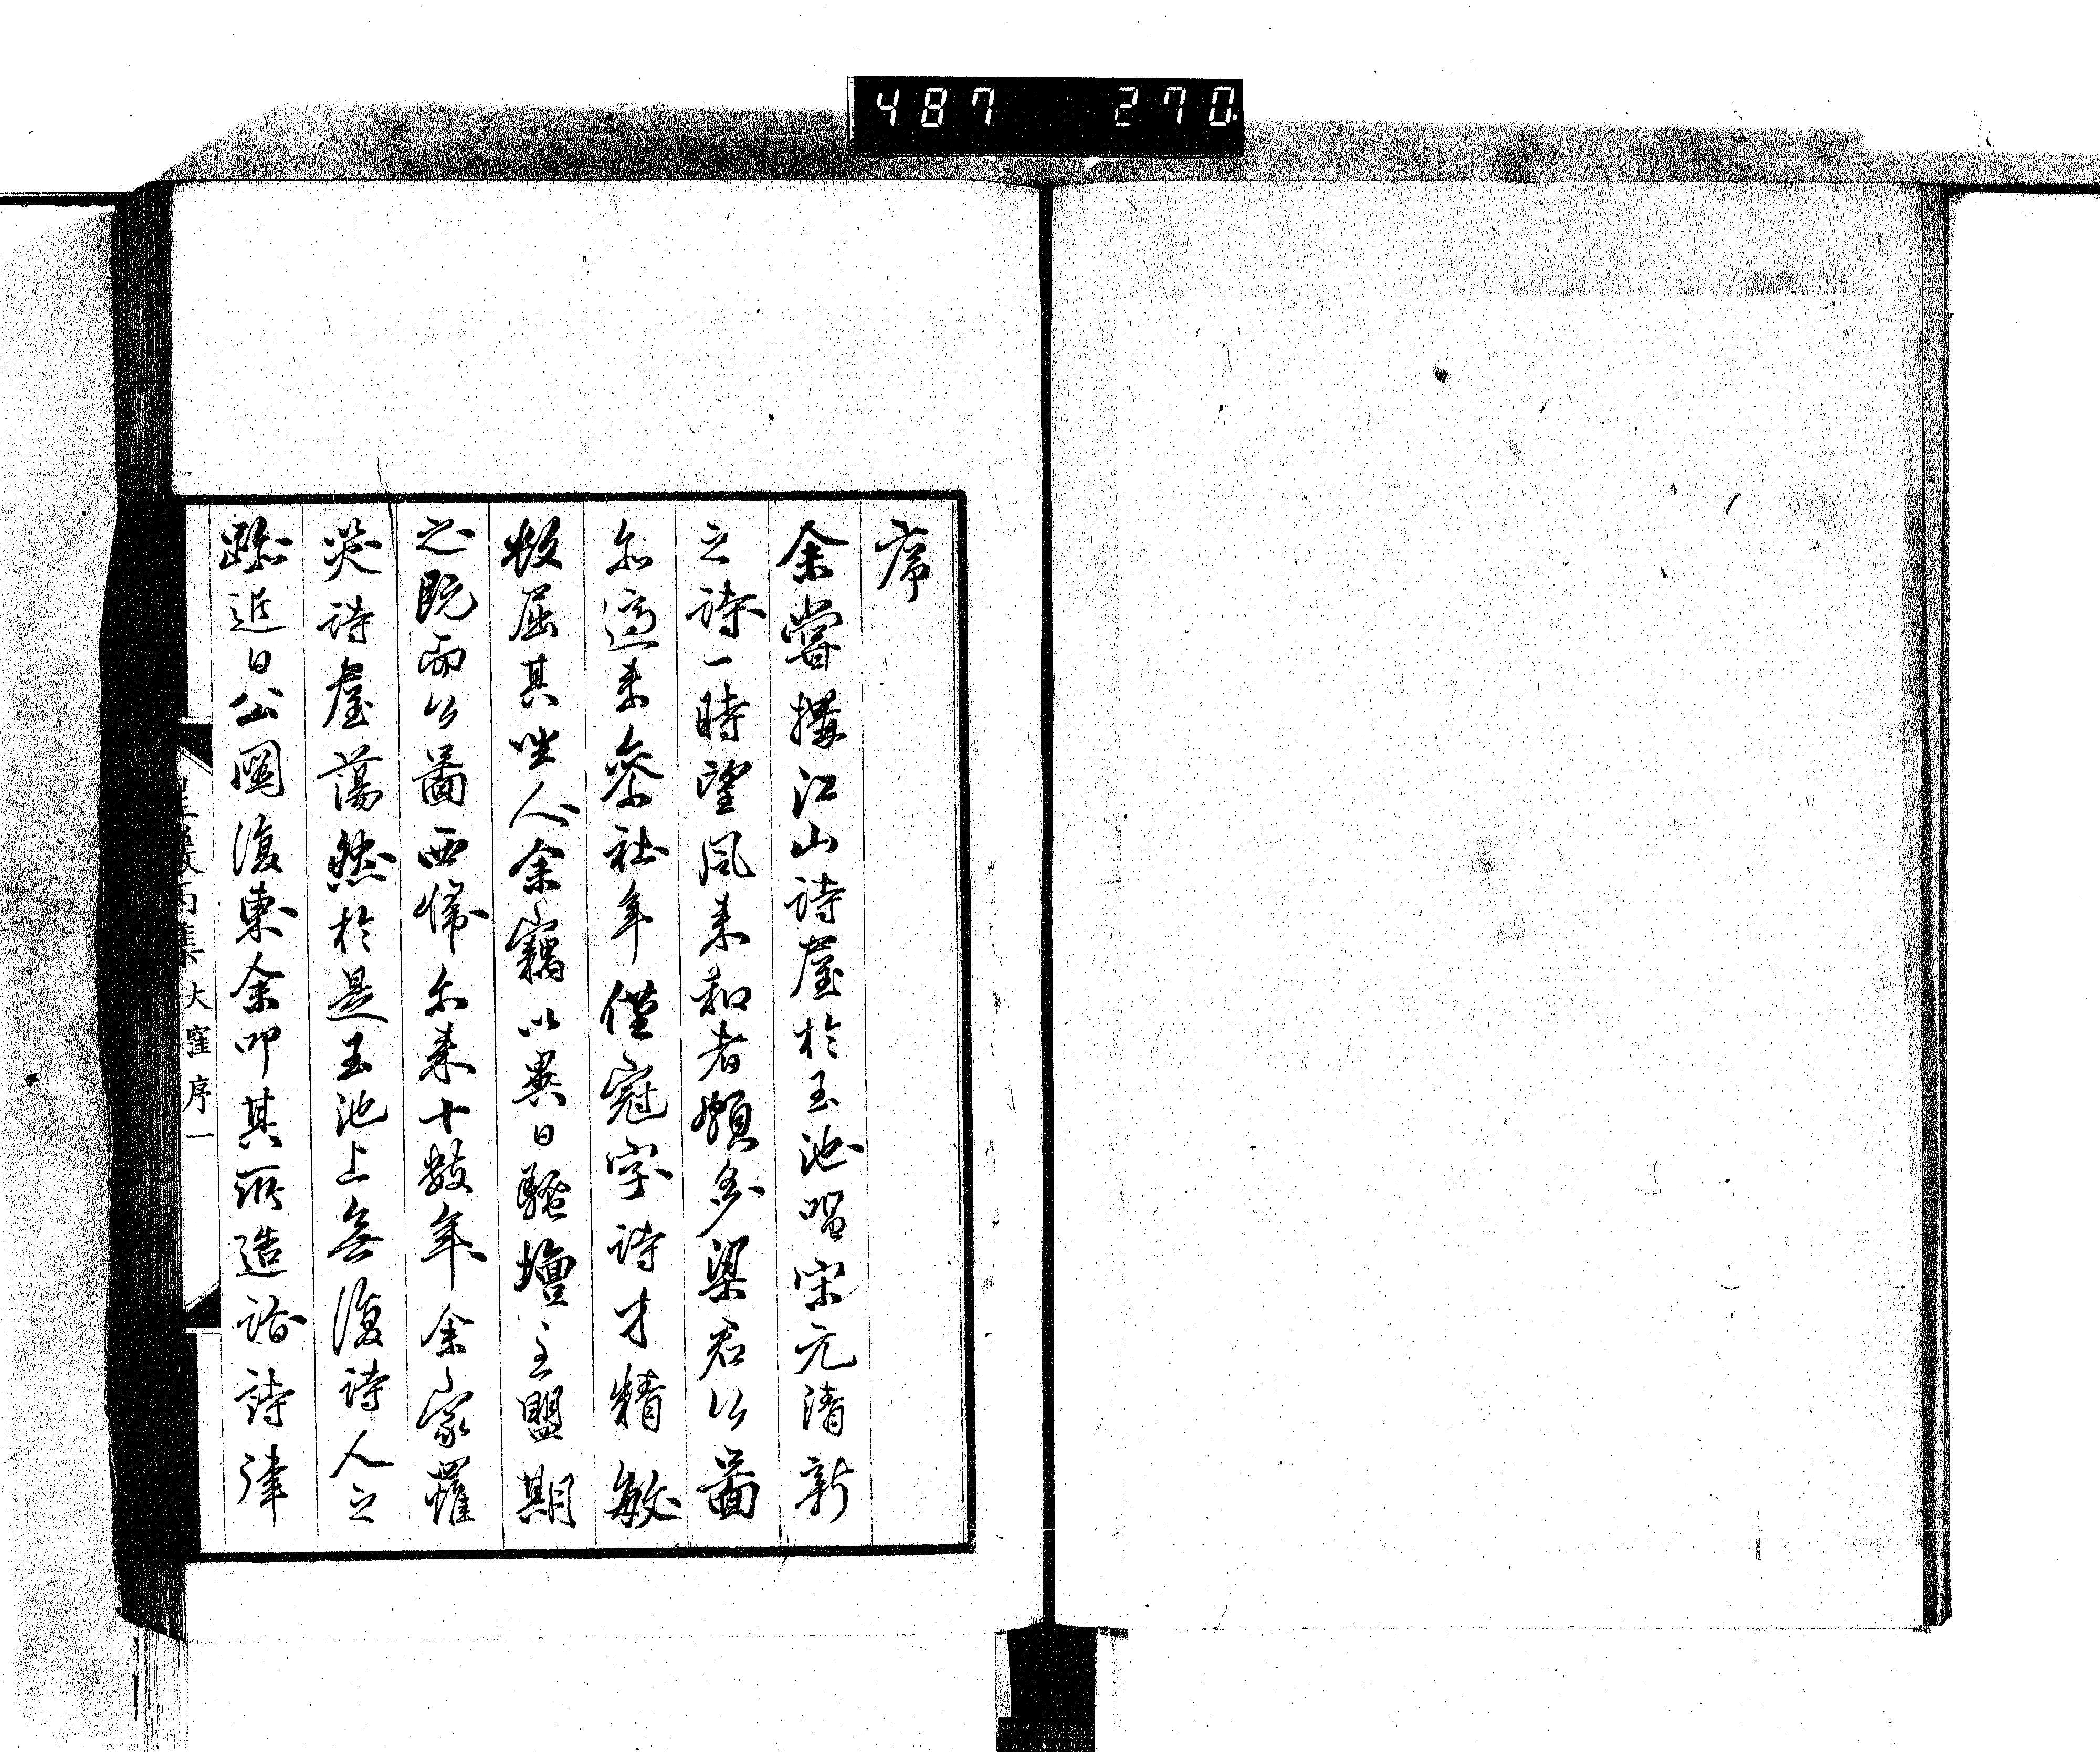 487 270
序
余嘗搆江山詩屋於玉池唱宋元清新
之詩一時望風來和者頗多梁君公圖
亦適來參社年僅冠字詩才精敏
數屈其坐人余竊以異日騷壇主盟期
之既而公圖西歸尒來十數年余家罹
災詩屋蕩然於是玉池上無復詩人之
跡近日公圖復東余叩其所造詣詩律
星巖丙集 大窪序 一